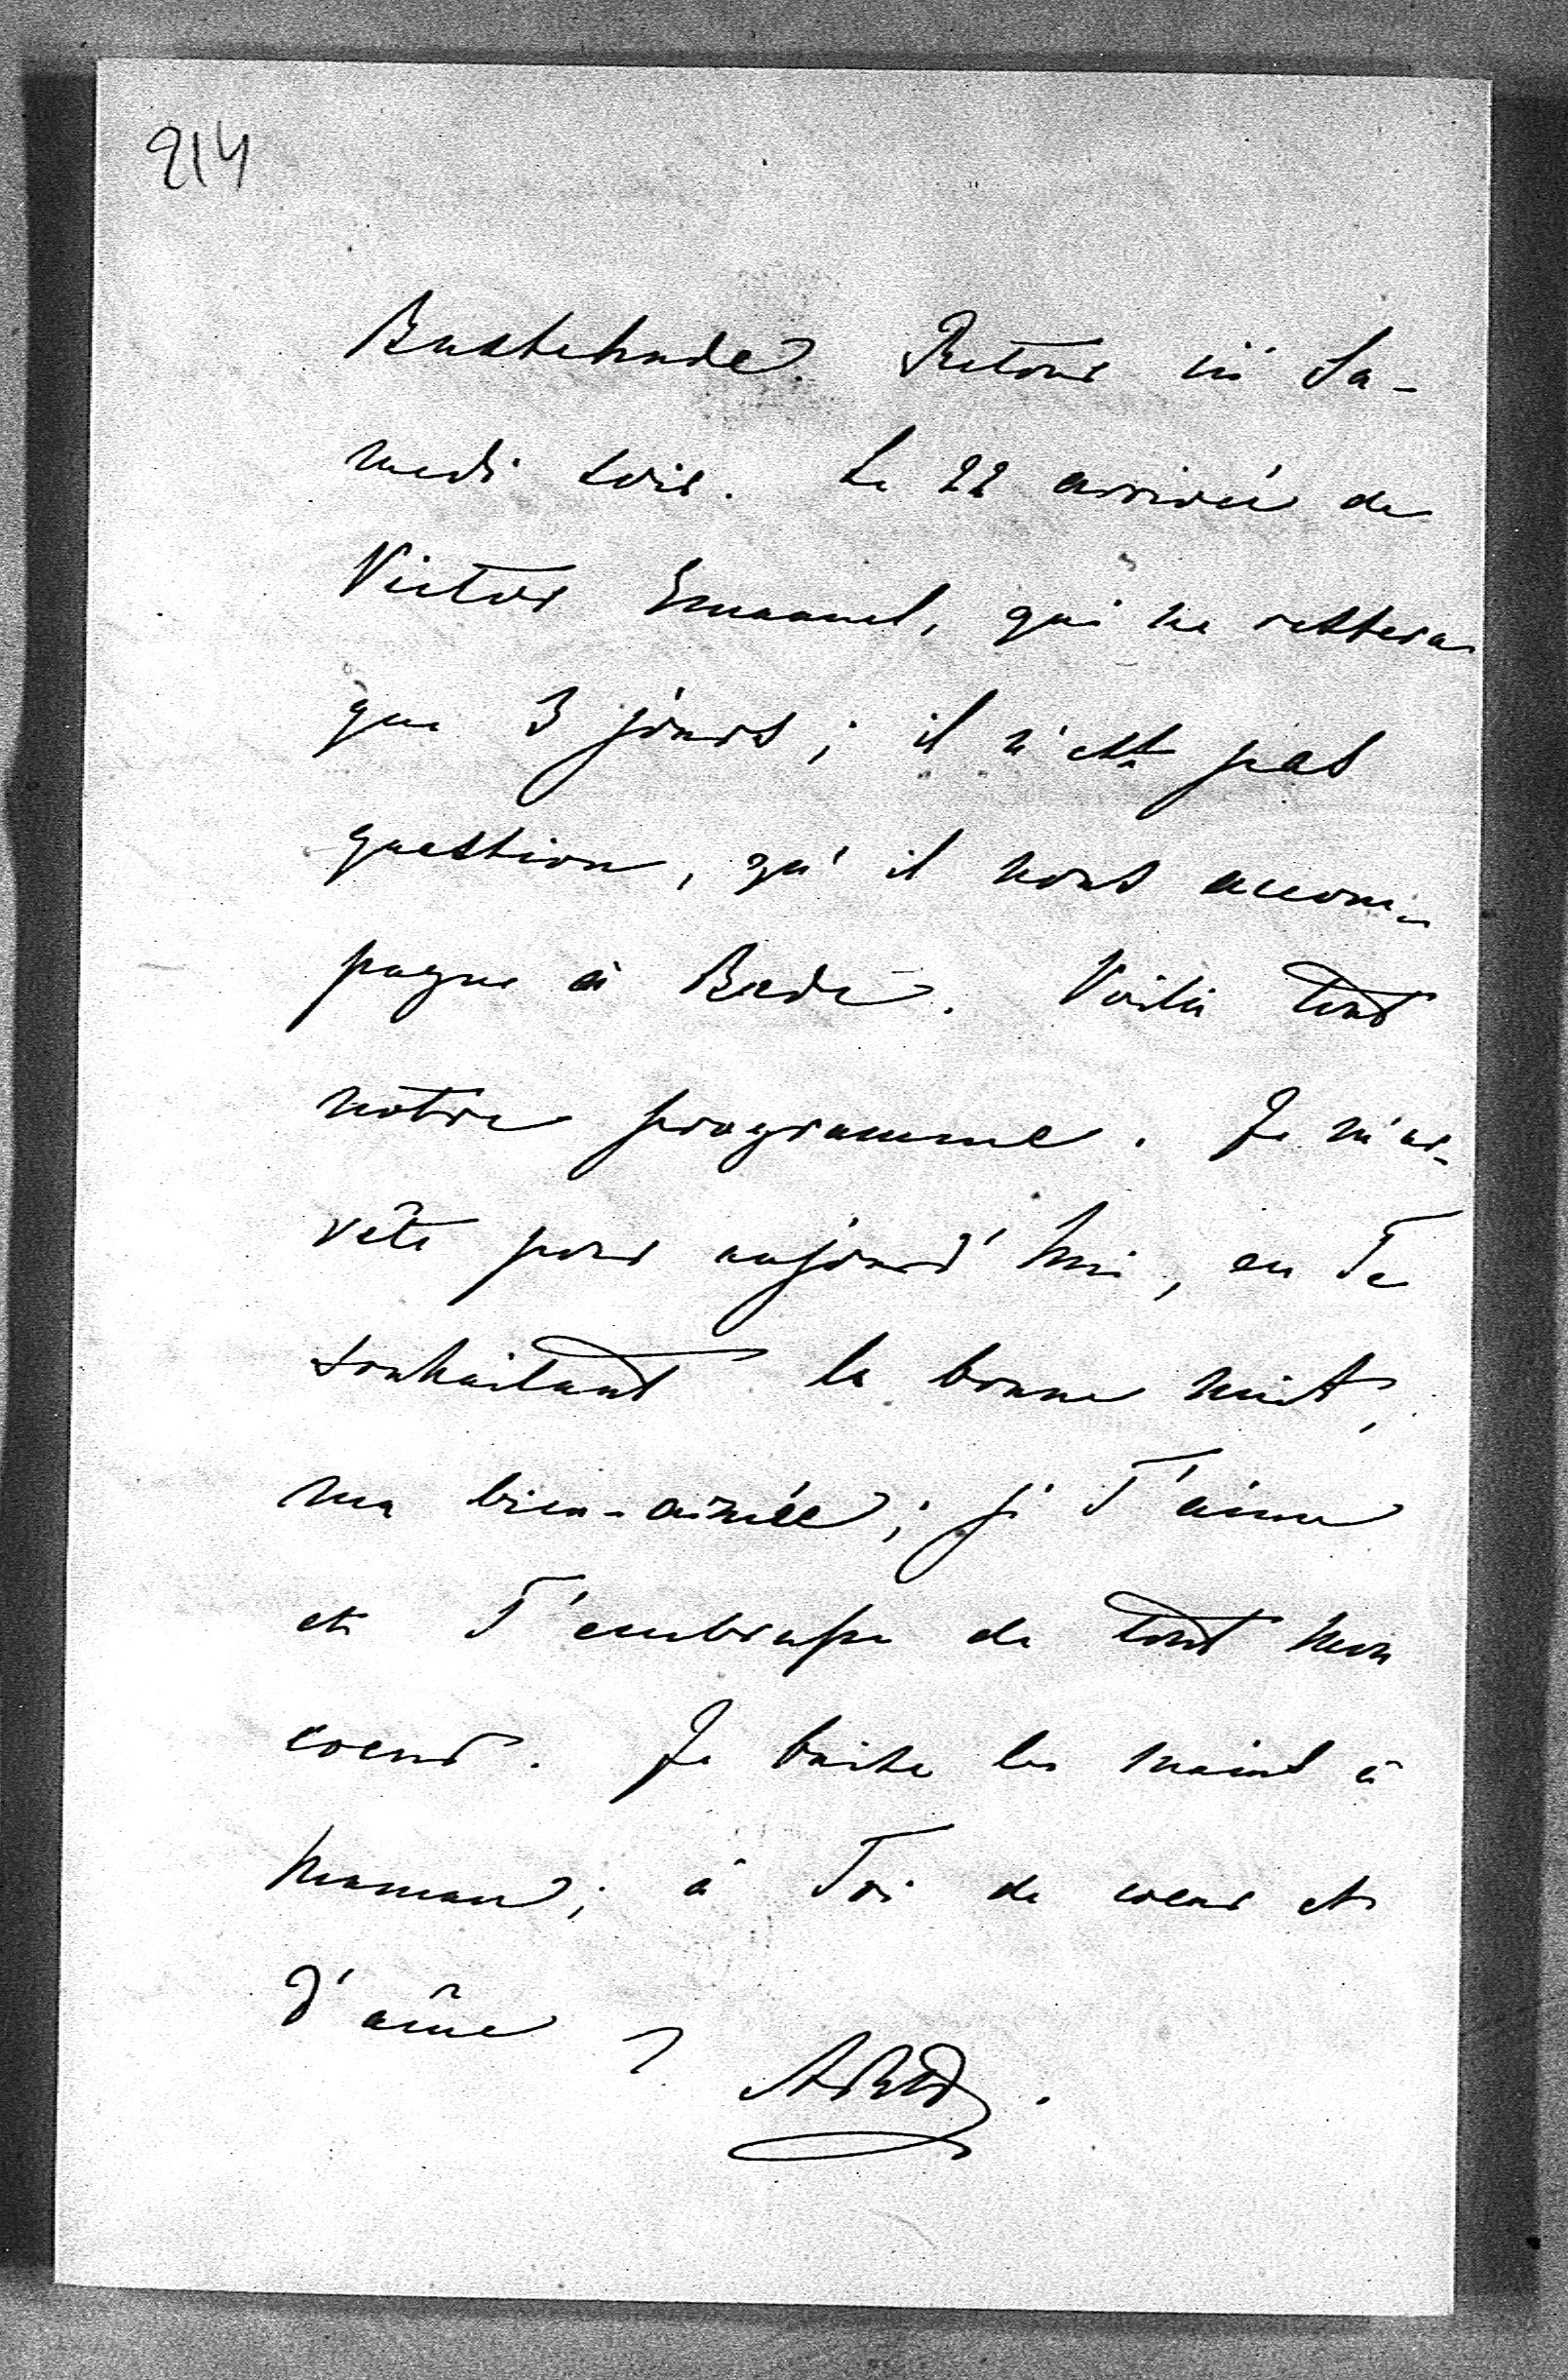 214
Buxtehude. Retour ici Sa-
medi soir. Le 22 arrivée de
Victor Emanuel, qui ne restera
que 3 jours; il n'est pas
question, qu'il nous accom-
pagne à Bade. Voilà tout
notre programme. Je m'ar-
rête pour aujourd'hui, en Te
souhaitant la bonne nuit,
ma bien-aimée; je T'aime
et T'embrasse de tout mon
coeur. Je baise les mains à
maman; à Toi de coeur et
d'âme